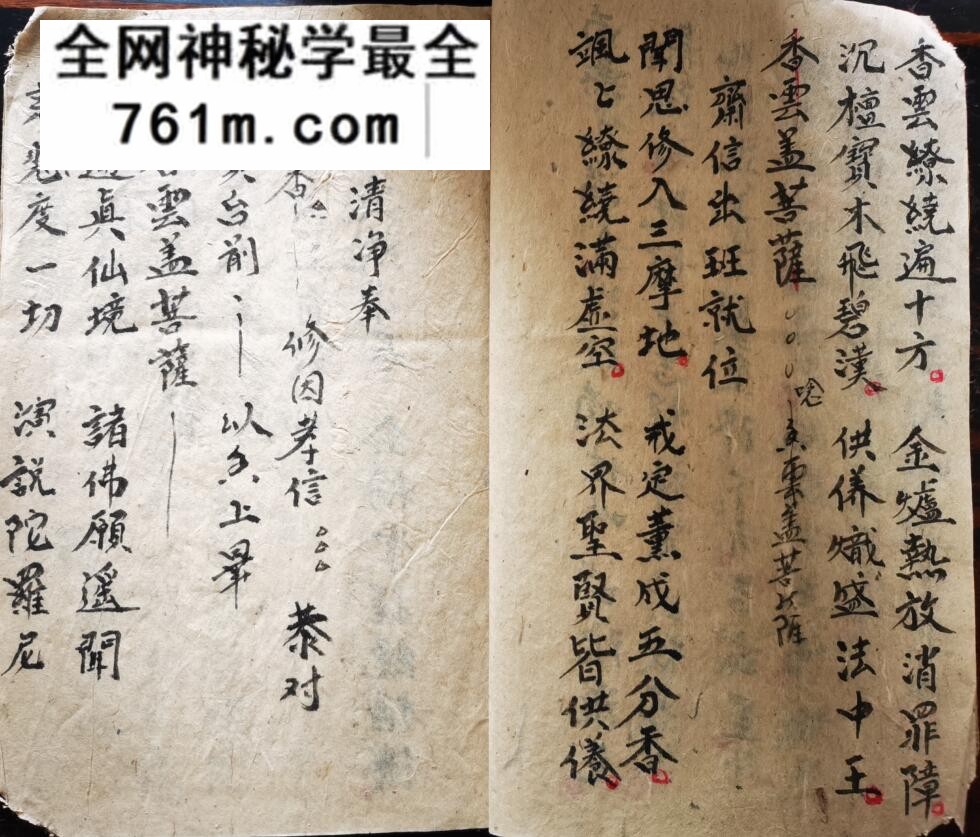 全网神秘学最全
761m.com
香雲繚繞遍十方 金爐熱放消罪障
沉檀寶木飛碧漢 供养熾盛法中王
香雲盖菩薩 唸 盖菩薩
齋信出班就位
聞思修入三摩地 戒定薰成五分香
颯〻繚繞滿虛空 法界聖賢皆供儀
清净奉
修因孝信 恭对
台前 以 上畢
雲盖菩薩
真仙境 諸佛願遥聞
度一切 演説陀羅尼